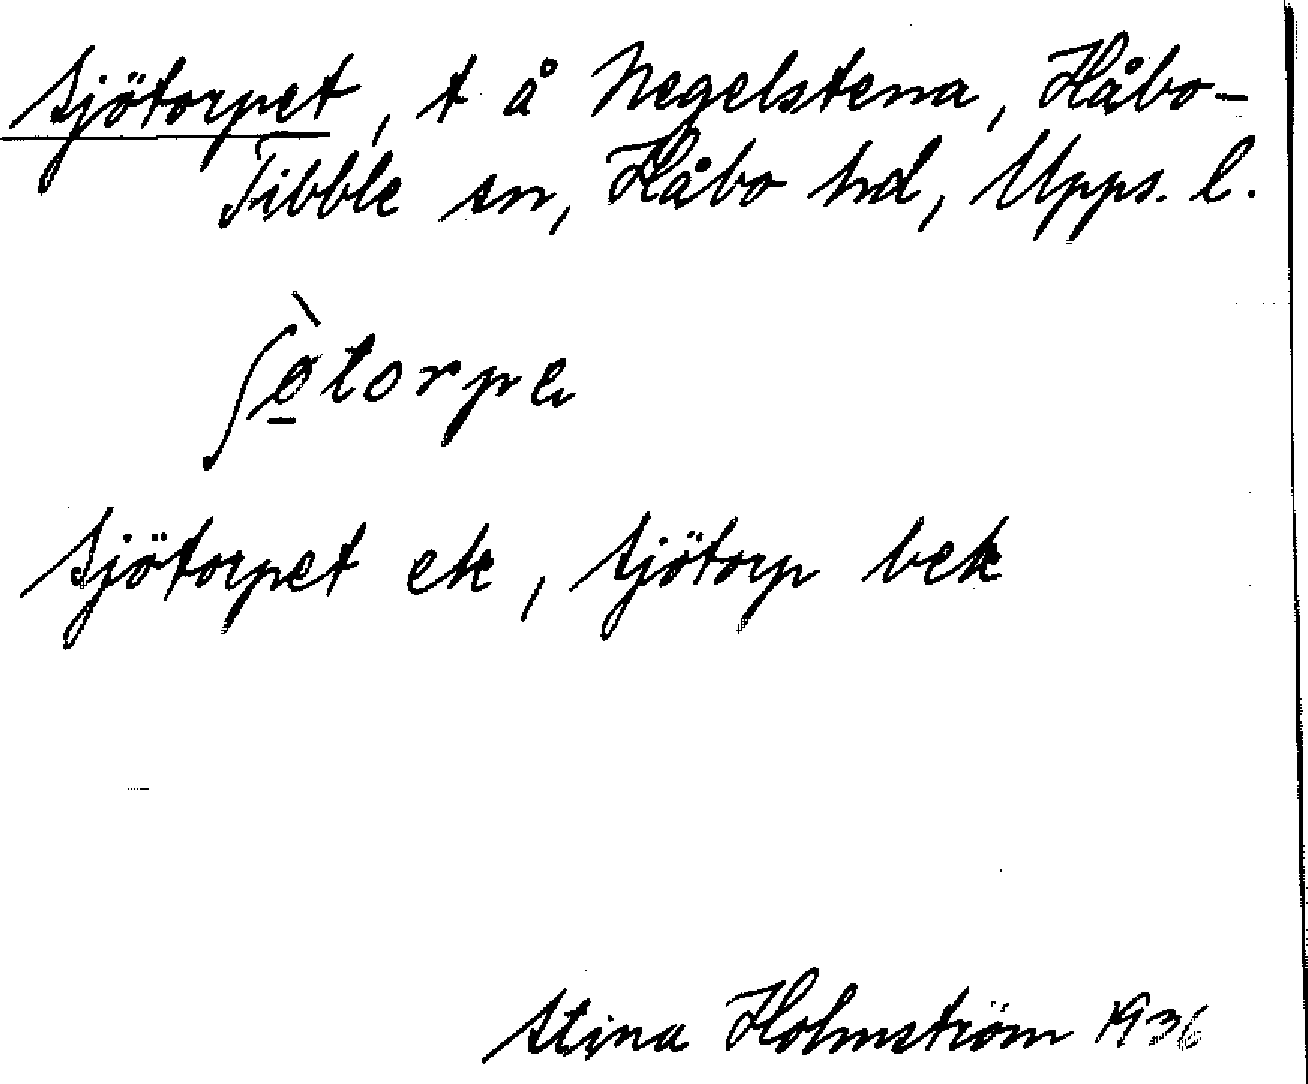 Sjötorpet, t å Negelstena, Håbo-
Tibble sn, Håbo hd, Upps. l.
ʃø̠̀torpe
Sjötorpet ek, Sjötorp bek
Stina Holmström 1936